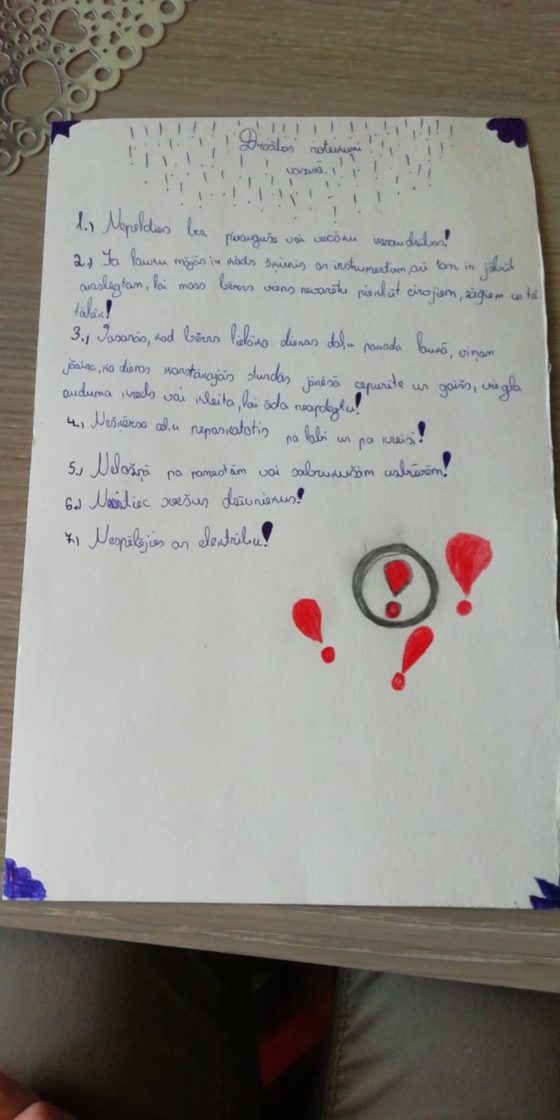 Drošības noteikumi
vasarā.
1., Nepeldies bez pieauguša vai vecāku uzraudzības!
2., Ja lauku mājās ir kāds šķūnis ar instrumentiem, arī tam ir jābūt
aizslēgtam, lai mazs bērns viens nevarētu piekļūt cirvjiem, zāģiem un tā
tālāk!
3., Vasarās, kad bērns lielāko dienas daļu pavada laukā, viņam
jāzina, ka dienas karstākajās stundās jānēsā cepurīte un gaišs, viegla
auduma krekls vai kleita, lai āda neapdegtu!
4., Nešķērso ceļu nepaskatoties pa labi un pa kreisi!
5., Neložņā pa pamestām vai sabrukušām uzbūvēm!
6., Neaiztiec svešus dzīvniekus!
7., Nespēlējies ar elektrību!